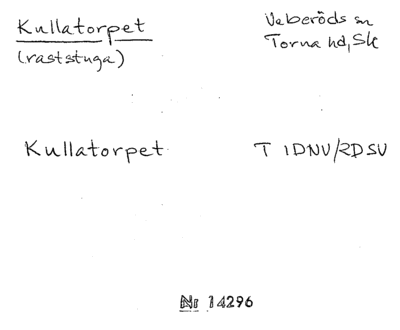 Kullatorpet
(raststuga)
Veberöds sn
Torna hd, Sk
Kullatorpet
T 1DNV/2DSV
Nr 14296